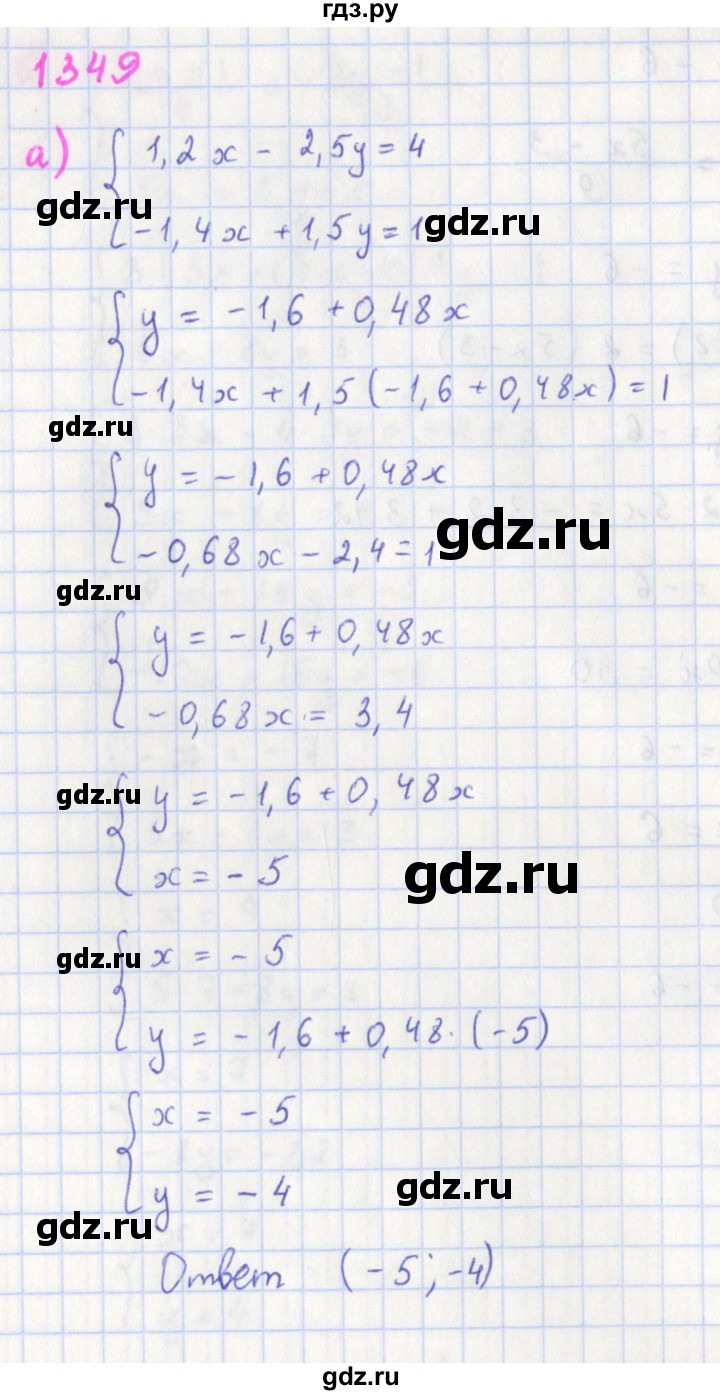 гдз.ру
1349
а) 1,2x - 2,5y = 4
gdz.ru
-1,4x + 1,5y = 1
gdz.ru
y = -1,6 + 0,48x
-1,4x + 1,5(-1,6 + 0,48x) = 1
gdz.ru
y = -1,6 + 0,48x
gdz.ru
-0,68x - 2,4 = 1
gdz.ru
y = -1,6 + 0,48x
-0,68x = 3,4
gdz.ru
y = -1,6 + 0,48x
x = -5
gdz.ru
gdz.ru
x = -5
y = -1,6 + 0,48·(-5)
x = -5
y = -4
gdz.ru
gdz.ru
Ответ (-5; -4)
gdz.ru